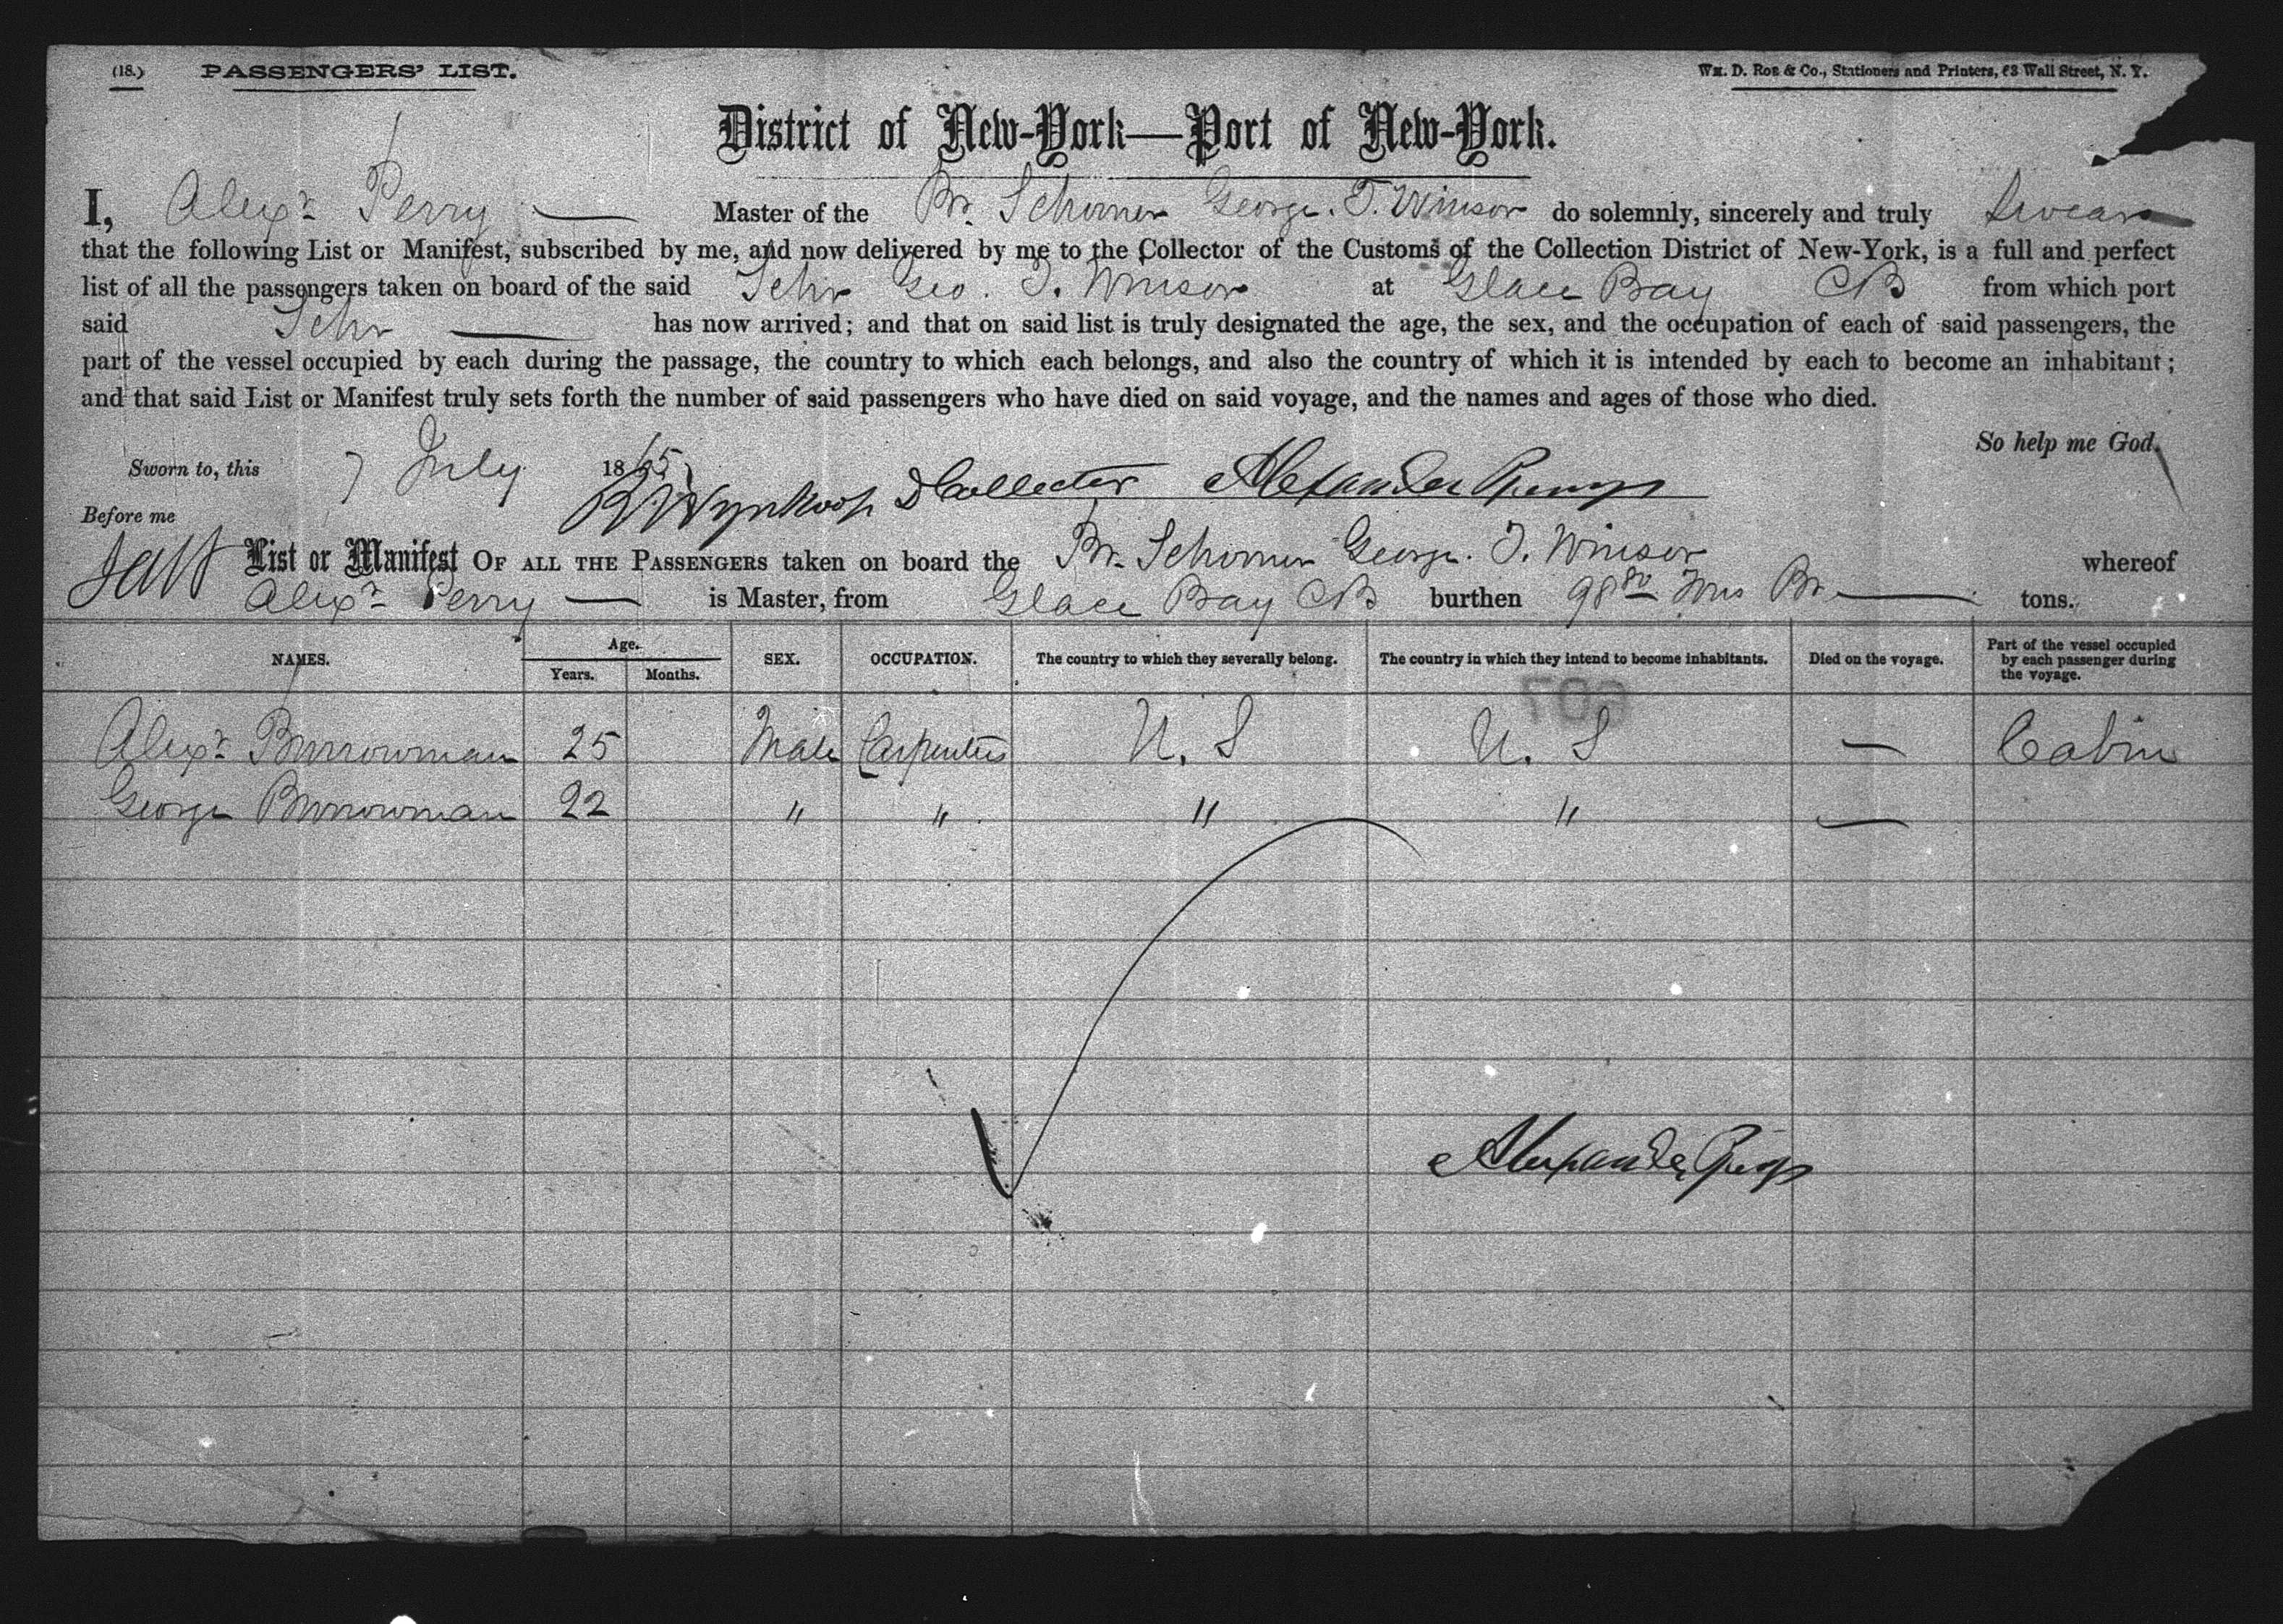 (18.) PASSENGERS' LIST.
Wm. D. Roe & Co., Stationers and Printers, 63 Wall Street, N. Y.
District of New-York—Port of New-York.
I, Alexr Perry — Master of the Br. Schooner George. T. Winsor do solemnly, sincerely and truly Swear
that the following List or Manifest, subscribed by me, and now delivered by me to the Collector of the Customs of the Collection District of New-York, is a full and perfect
list of all the passengers taken on board of the said Schr Geo. T. Winsor at Glace Bay CB from which port
said Schr — has now arrived; and that on said list is truly designated the age, the sex, and the occupation of each of said passengers, the
part of the vessel occupied by each during the passage, the country to which each belongs, and also the country of which it is intended by each to become an inhabitant;
and that said List or Manifest truly sets forth the number of said passengers who have died on said voyage, and the names and ages of those who died.
So help me God.
Sworn to, this 7 July 1865
Wynkoop D Collector Alexander Perry
Before me
List or Manifest OF ALL THE PASSENGERS taken on board the Br. Schooner George. T. Winsor whereof
Alexr Perry — is Master, from Glace Bay CB burthen 98 80 Tons Br — tons.
NAMES. Age. Years. Months. SEX. OCCUPATION. The country to which they severally belong. The country in which they intend to become inhabitants. Died on the voyage. Part of the vessel occupied by each passenger during the voyage.
607
Alexr Burrowman 25 Male Carpenters U. S U. S — Cabin
George Burrowman 22 " " " " —
Alexander Perry